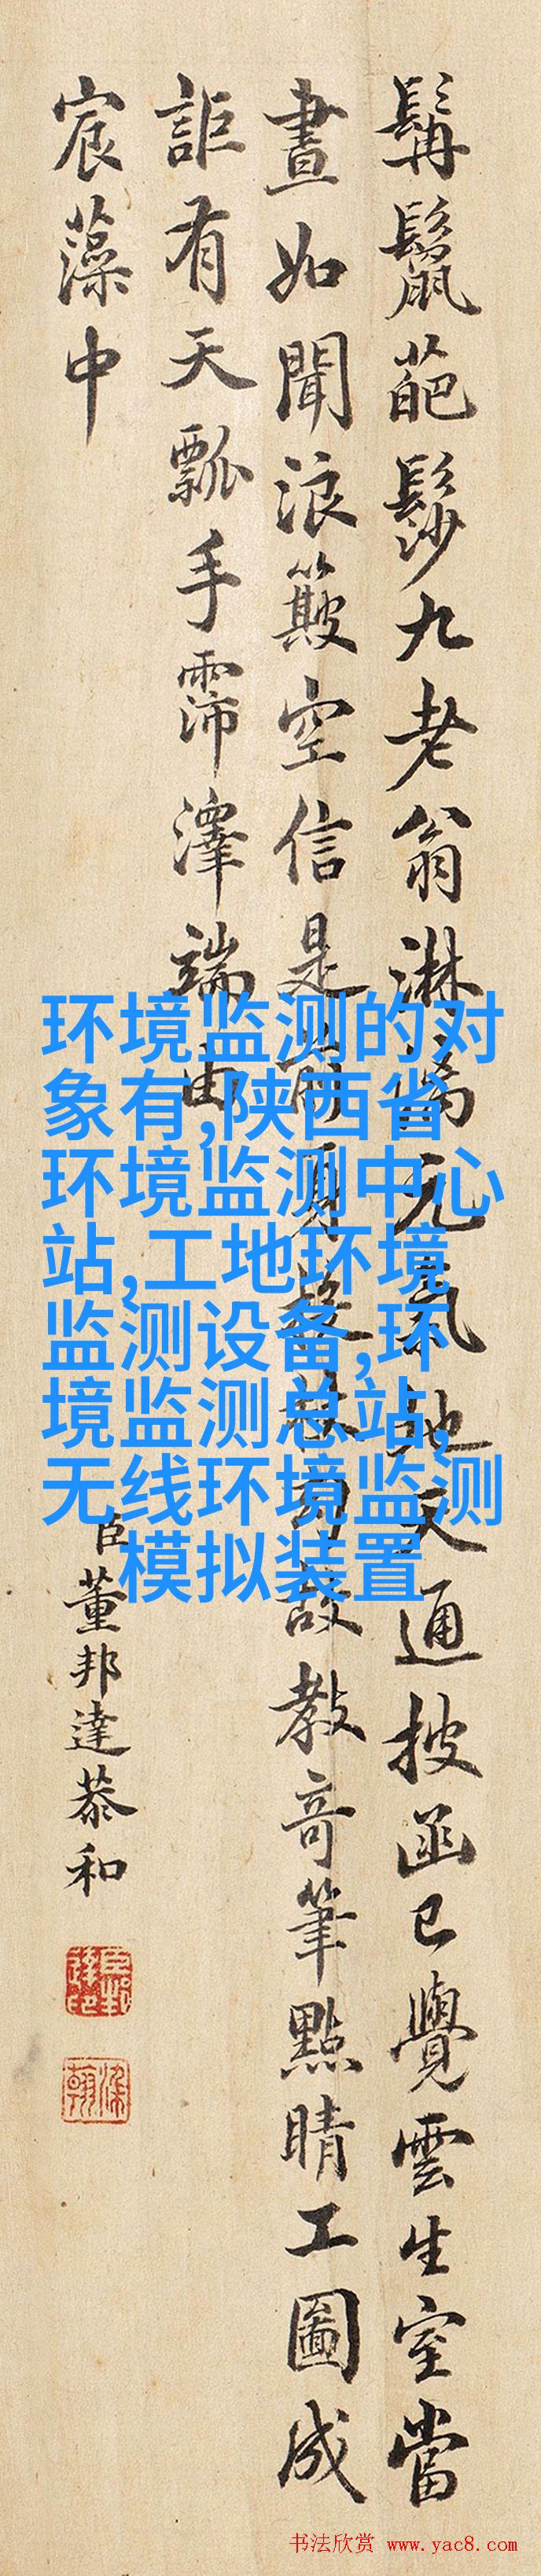 髯鬣葩髿九老翁淋漓元氣地天通披函已覺雲生室當
晝如聞浪簸空信是
故教奇筆點睛工圖成
詎有天瓢手霈澤端由
宸藻中
臣董邦達恭和
环境监测的对
象有,陕西省
环境监测中心
站,工地环境
监测设备,环
境监测总站,
无线环境监测
模拟装置
书法欣赏 www.yac8.com